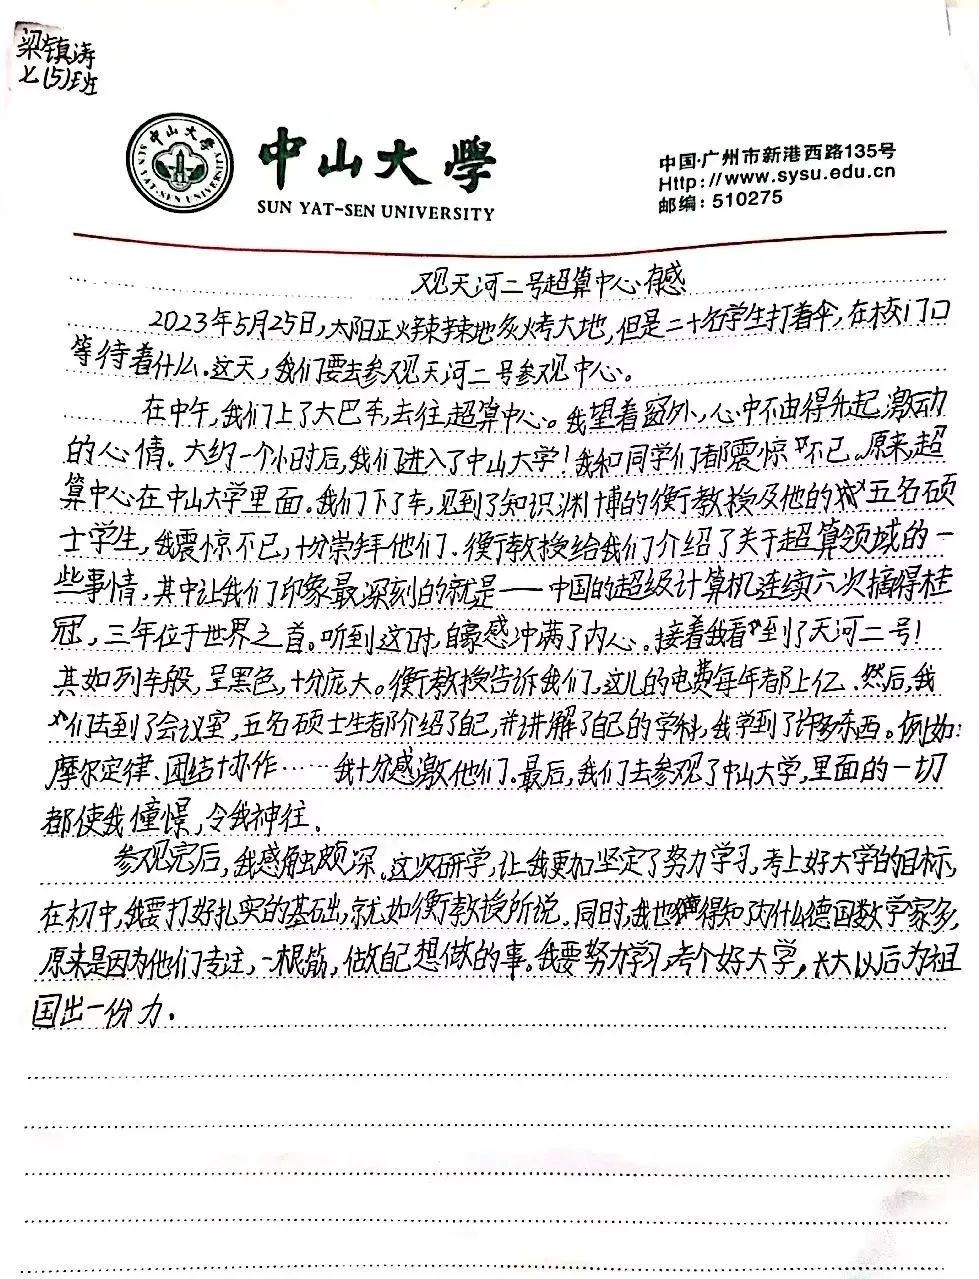 梁镇涛
七(5)班
中山大學
SUN YAT-SEN UNIVERSITY
中山大學
SUN YAT-SEN UNIVERSITY
中国·广州市新港西路135号
Http://www.sysu.edu.cn
邮编: 510275
观天河二号超算中心有感
2023年5月25日,太阳正火辣辣地炙烤大地,但是二十名学生打着伞,在校门口
等待着什么.这天,我们要去参观天河二号参观中心。
在中午,我们上了大巴车,去往超算中心。我望着窗外,心中不由得升起激动
的心情.大约一个小时后,我们进入了中山大学!我和同学们都震惊不已.原来,超
算中心在中山大学里面.我们下了车,见到了知识渊博的衡教授及他的五名硕
士学生,我震惊不已,十分崇拜他们.衡教授给我们介绍了关于超算领域的一
些事情,其中让我们印象最深刻的就是——中国的超级计算机连续六次摘得桂
冠,三年位于世界之首。听到这时,自豪感冲满了内心。接着我看到了天河二号!
其如列车般,呈黑色,十分庞大。衡教授告诉我们,这儿的电费每年都上亿.然后,我
们去到了会议室,五名硕士生都介绍了自己,并讲解了自己的学科,我学到了许多东西。例如:
摩尔定律、团结协作……我十分感激他们.最后,我们去参观了中山大学,里面的一切
都使我憧憬,令我神往.
参观完后,我感触颇深.这次研学,让我更加坚定了努力学习,考上好大学的目标,
在初中,我要打好扎实的基础,就如衡教授所说.同时,我也得知为什么德国数学家多,
原来是因为他们专注,一根筋,做自己想做的事。我要努力学习,考个好大学,长大以后为祖
国出一份力.